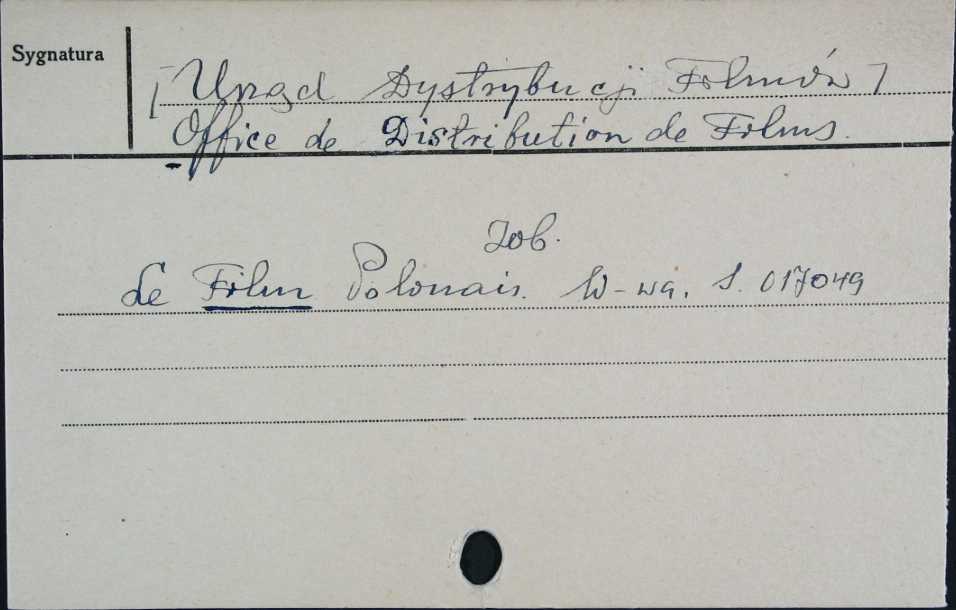 Sygnatura
[Urząd Dystrybucji Filmów]
Office de Distribution de Films.
Zob.
Le Film Polonais. W-wa. S. 017049